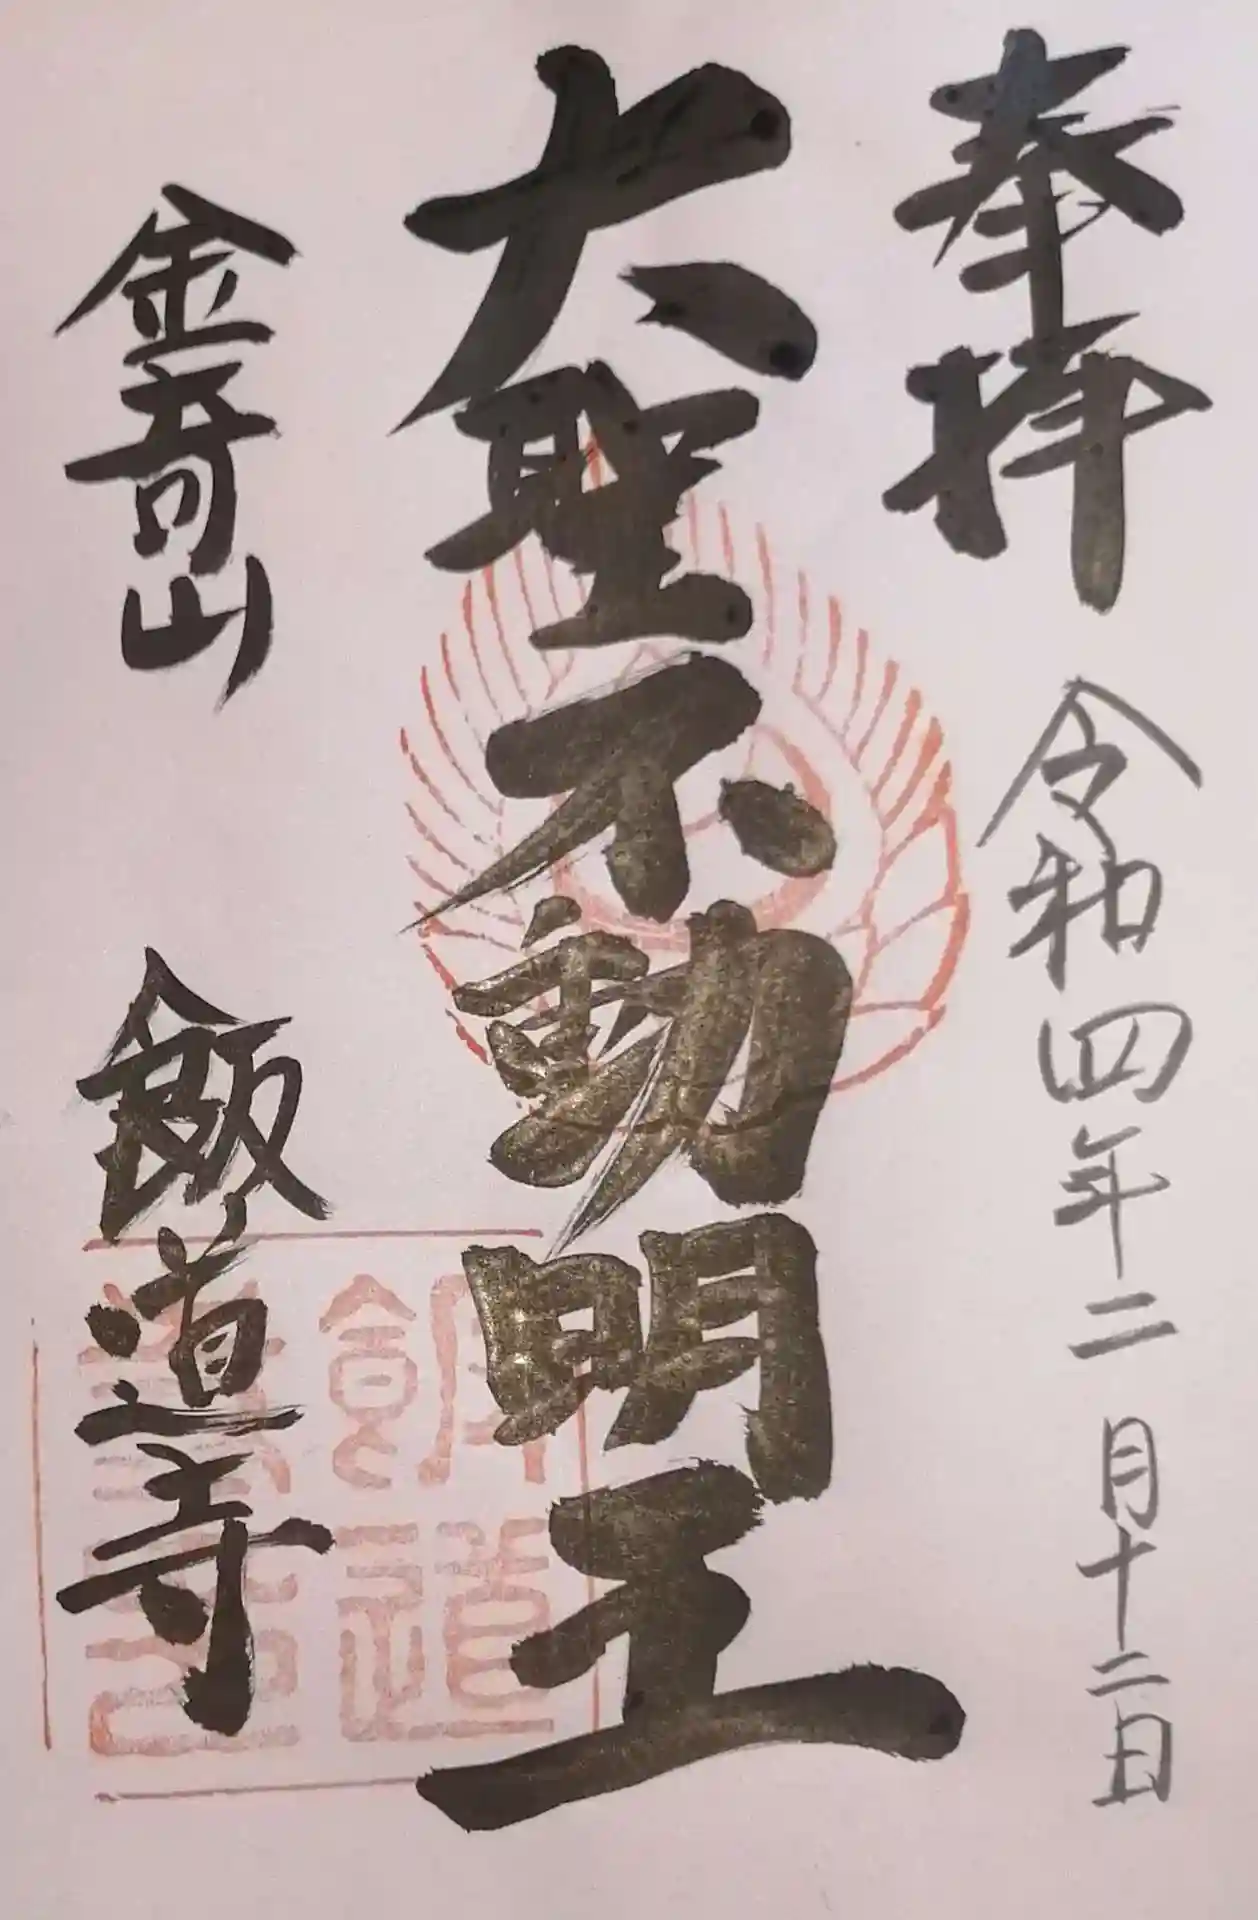 奉拝 令和四年二月十二日
大聖不動明王
金奇山 飯道寺
飯道